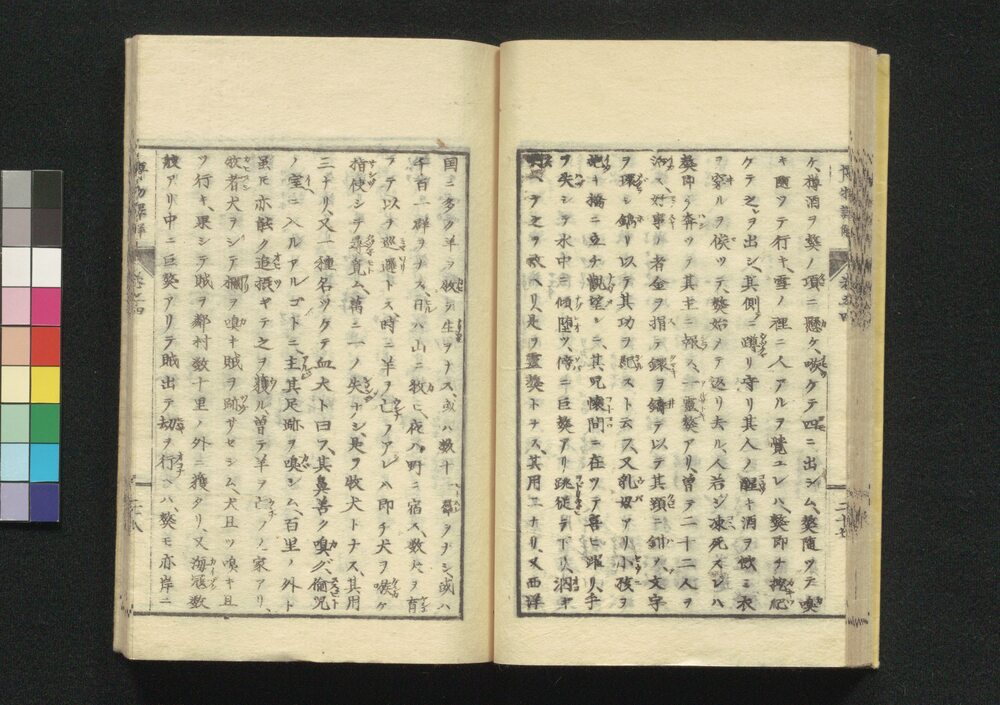 ケ、樽酒ヲ獒ノ項ニ懸ケ、嗾ケテ四ニ出シム、獒随ツテ嗅
キ随フテ行キ、雪ノ裡ニ人アルヲ覺ユレハ、獒即チ
ケテ之ヲ出シ、其側ニ蹲リ守リ其人ノ醒キ酒ヲ飲ミ衣
ヲ穿ルヲ俟ツテ、獒始メテ返リ去ル、人若シ凍死スレハ
獒即ラ奔ツテ其主ニ報ス、一靈獒アリ、曽テ二十二人ヲ
活ス、好事ノ者金ヲ捐テ鐶ヲ鑄テ以テ其頸ニ鉗ス、文字
ヲ環ニ鐫リ以テ其功ヲ紀スト云ス、又乳母アリ小孩ヲ
抱キ橋ニ立チ觀望シ、其児懐間ニ在ツテ喜ヒ躍リ、手
ヲ失シテ水中ニ傾墮ツ、傍ニ巨獒アリ跳従ラ下リ、泅ヤ
テ之ヲ救ヘリ、是ヲ靈獒トナス、其用一ナリ、又西洋
国ニ多ク羊ヲ牧シ生ヲナス、或ハ数十一羣ヲナシ、或ハ
千百一群ヲナス、日ハ山ニ牧ヒ、夜ハ野ニ宿ス、数犬ヲ育
ヲテ以テ巡邏トス、時ニ羊ヲ亡ノアレハ即チ犬ヲ嗾ケ
指使シテ尋覓ム、萬ニ一ノ失ナシ、是ヲ牧犬トナス、其用
三ナリ、又一種名ツケテ血犬ト曰フ、其鼻善ク嗅グ、偸児
ノ室ニ入ルアルゴトニ、主其足跡ヲ嗅シム、百里ノ外ト
虽𪜈亦能ク追攝ヤテ之ヲ獲ル、曽テ羊ヲ亡ノ家アリ、
牧者犬ヲシテ欄ヲ嗅キ賊ヲ跡サセシム犬且ツ嗅キ且
ツ行キ、果シテ賊ヲ鄰村数十里ノ外ニ獲タリ、又海寇数
艘アリ中ニ巨獒アリテ賊出テ劫ヲ行ヘハ、獒モ亦岸ニ